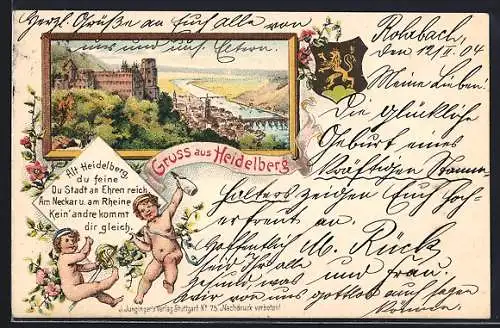 Herzl. Grüße an Euch alle von
uns und uns. Eltern.
Rohrbach,
den 12/II. 04
Meine Lieben!
Die glückliche
Geburt eines
kräftigen Stamm-
halters zeigen Euch hoch-
erfreut an.
M. Rück
und Frau.
Hoffentlich
seid Ihr alle
gesund, was
wir von uns gottlob auch sagen
können.
Gruss aus Heidelberg
Alt Heidelberg,
du feine
Du Stadt an Ehren reich,
Am Neckar u. am Rheine
Kein' andre kommt
dir gleich.
J. Junginger's Verlag Stuttgart. No 75. Nachdruck verboten!